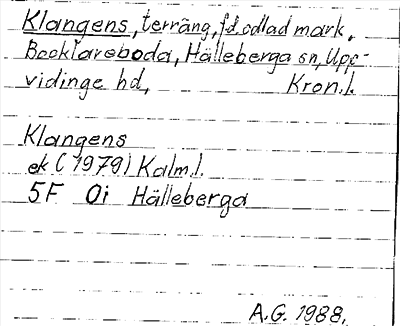 Klangens, terräng, f.d. odlad mark,
Bocklareboda, Hälleberga sn, Upp-
vidinge hd, Kron.l.
Klangens
ek (1979) Kalm.l.
5F 0i Hälleberga
A.G. 1988.